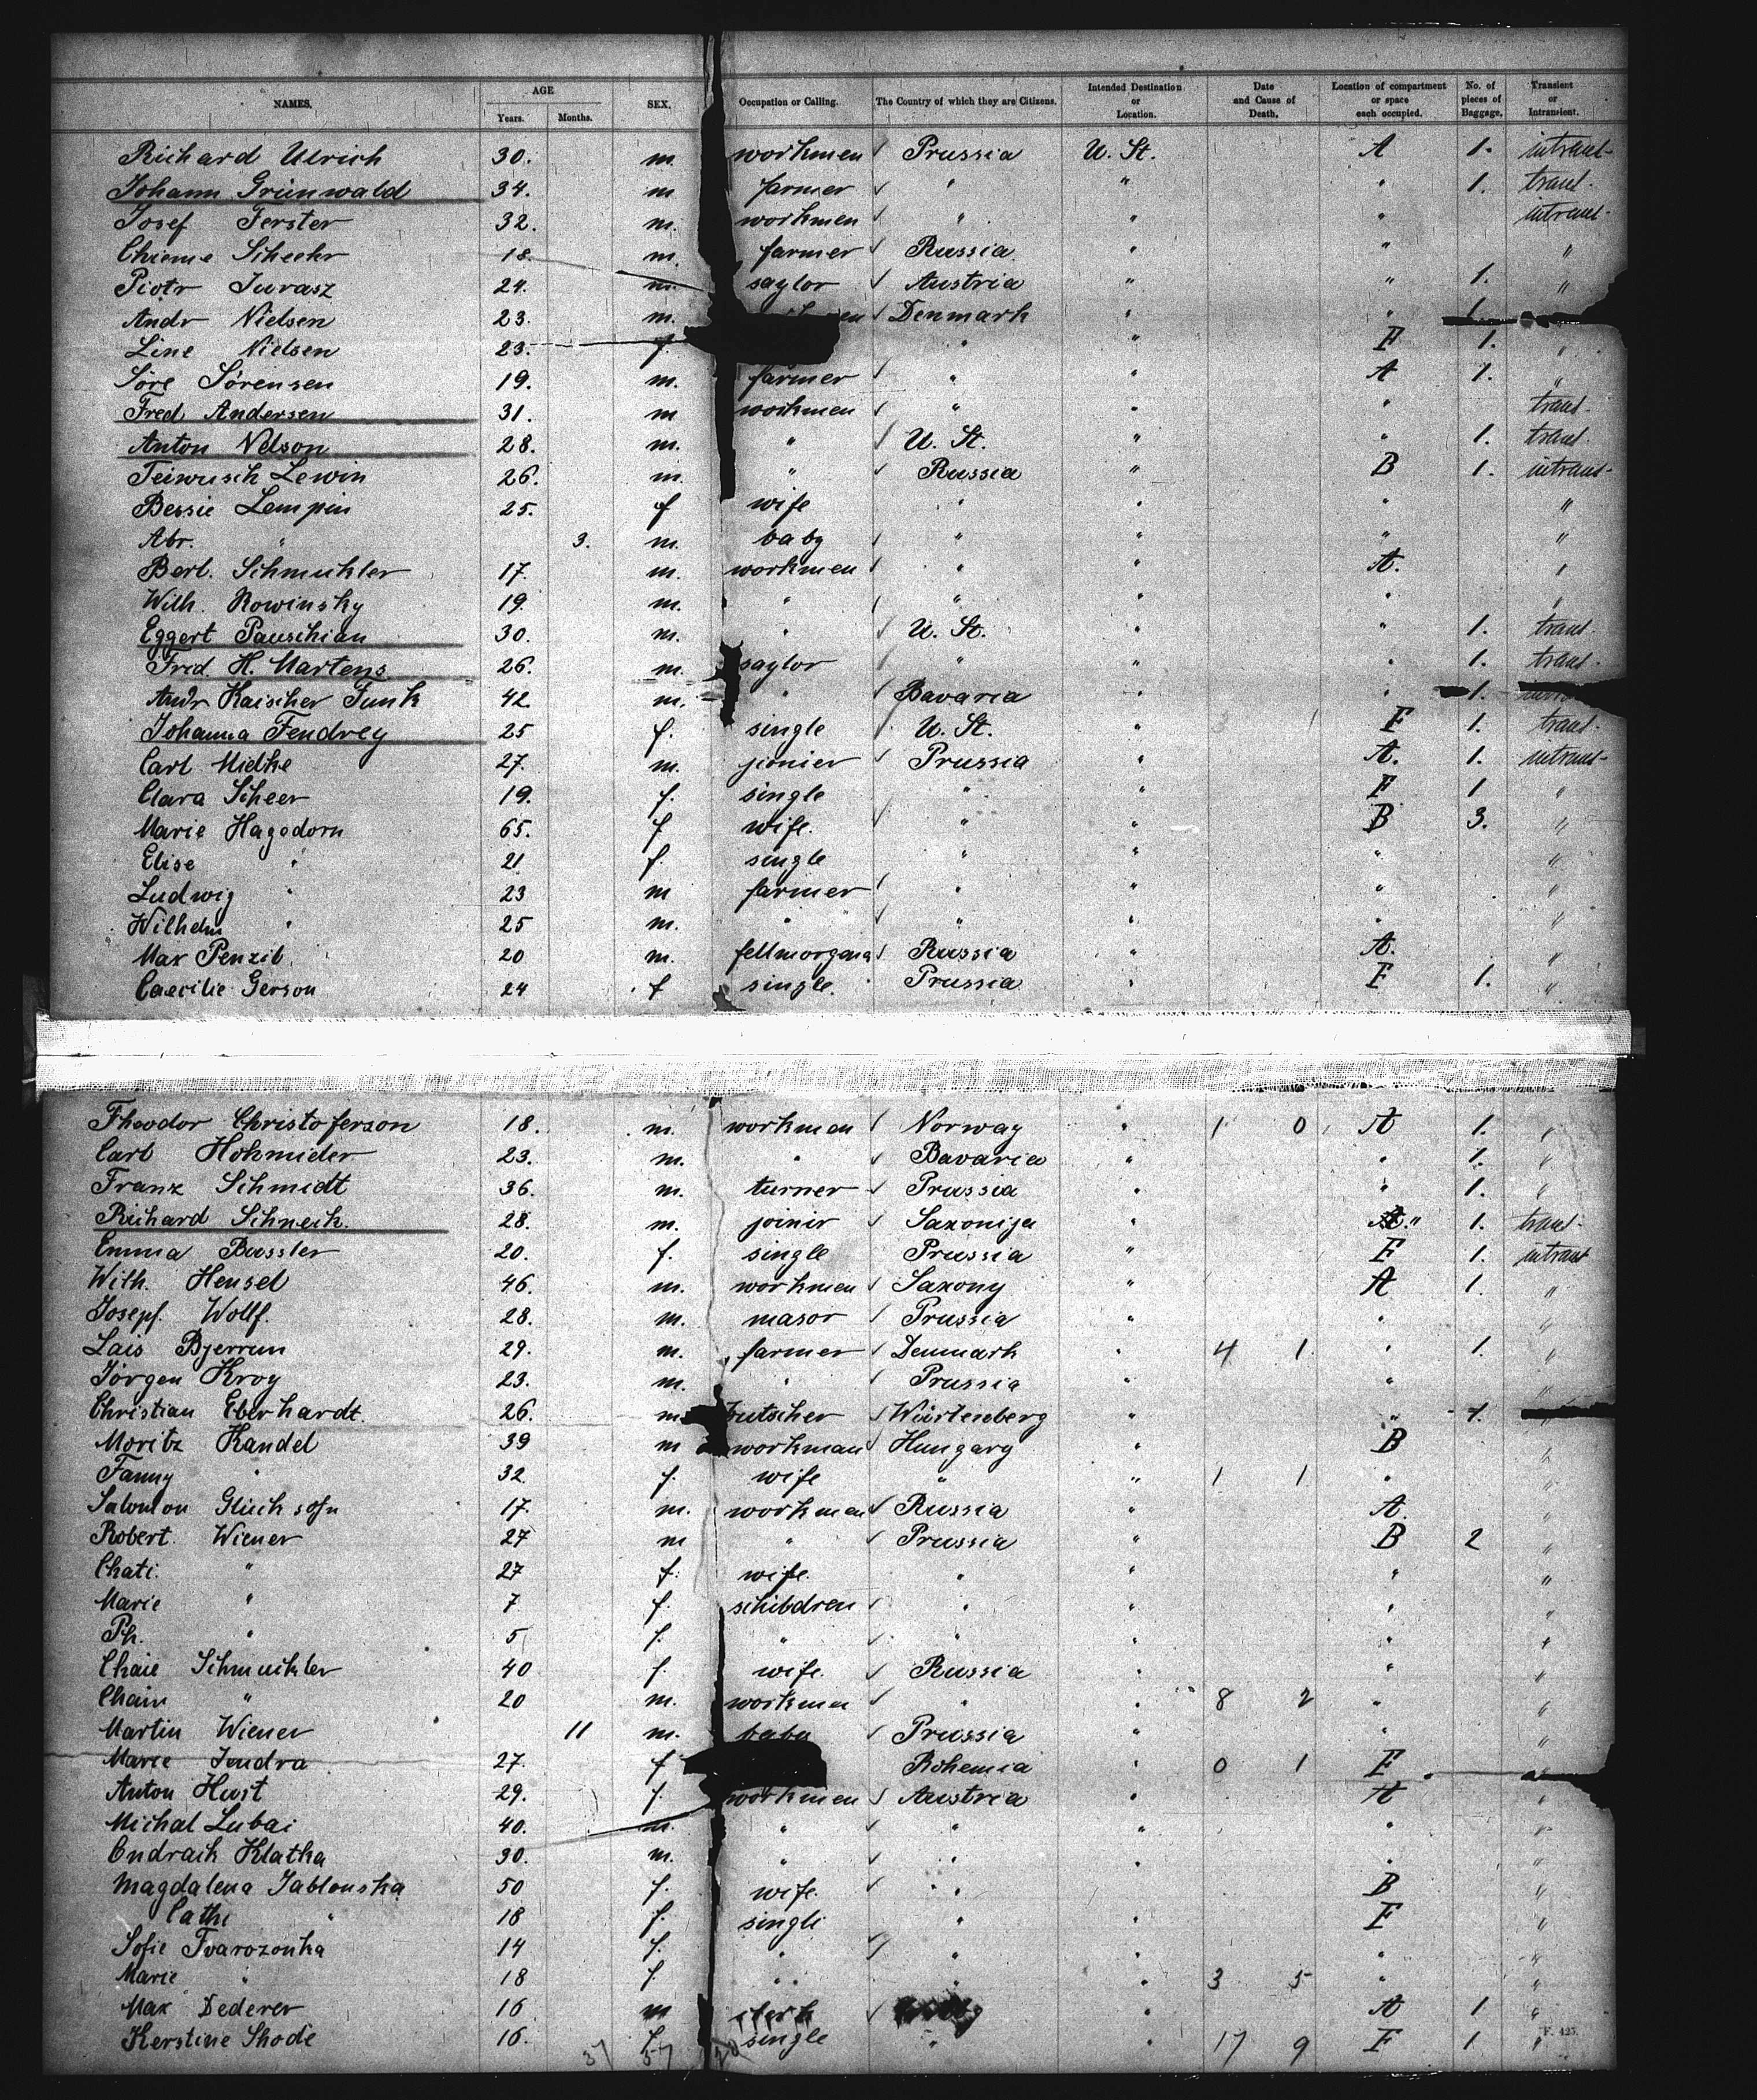 NAMES. AGE Years. Months. SEX. Occupation or Calling. The Country of which they are Citizens. Intended Destination or Location. Date and Cause of Death. Location of compartment or space each occupied. No. of pieces of Baggage. Transient or Intransient.
Richard Ulrich 30. m. workmen Prussia U. St. A 1. intrant-
Johann Grünwald 34. m farmer " " " 1. trant-
Josef Ferster 32. m. workmen " " " intrant-
Chieme Scheehr 18. m. farmer Russia " " "
Piotr Jurasz 24. m. saylor Austria " " 1. "
Andr Nielsen 23. m. Denmark " " 1.
Line Nielsen 23. f. " " F 1. "
Söre Sörensen 19. m. farmer " " A 1. "
Fred Andersen 31. m workmen " " " trant-
Anton Nelson 28. m. " U. St. " " 1. trant-
Leiwusch Lewin 26. m. " Russia " B 1. intrant-
Bessie Lempin 25. f wife " " " "
Abr. " 3. m. baby " " " "
Berl. Schmukler 17. m. workmen " " A. "
Wilh. Rowinsky 19. m. " " " " "
Eggert Pauschian 30. m. " U. St. " " 1. trant-
Fred. H. Martens 26. m. saylor " " " 1. trant-
Andr Kaischer Funk 42. m. " Bavaria " " 1.
Johanna Fendrey 25 f. single U. St. " F 1. trant-
Carl Miethe 27. m. jionier Prussia " A. 1. intrant-
Clara Scheer 19. f. single " " F 1 "
Marie Hagedorn 65. f wife. " " B 3. "
Elise " 21 f. single " " " "
Ludwig " 23 m farmer " " " "
Wilhelm " 25 m. " " " " "
Max Penzil. 20 m. Russia " A. "
Caecilie Gerson 24 f single. Prussia " F 1. "
Theodor Christoferson 18. m. workman Norway " 1 0 A 1. "
Carl Hohmider 23. m. " Bavaria " " 1. "
Franz Schmidt 36. m. turner Prussia " " 1. "
Richard Schneck. 28. m. joinir Saxonija " A." 1. trant-
Emma Bussler 20. f. single Prussia " F 1. intrant
Wilh. Hensel 46. m. workmen Saxony " A 1. "
Josepf. Wolff. 28. m. masor Prussia " " "
Lais Bjerrum 29. m. farmer Denmark " 4 1 " 1. "
Jörgen Kroy 23. m. " Prussia " " "
Christian Eberhardt. 26. m. kutscher Würtenberg " " 1.
Moritz Kandel 39 m workman Hungary " B "
Fanny " 32 f. wife " " 1 1 " "
Salomon Glücksofn 17. m. workmen Russia " A. "
Robert Wiener 27 m " Prussia " B 2 "
Chati. " 27 f. wife. " " " "
Marie " 7 f. schildren " " " "
Ph. " 5 f. " " " " "
Chaie Schmuckler 40 f. wife. Russia " " "
Chaim " 20 m. workmen " " 8 2 " "
Martin Wiener 11 m. baby Prussia " " "
Marie Jendra 27. f Bohemia " 0 1 F
Anton Hust 29. f. workmen Austria " A "
Michal Lubai 40. m. " " " " "
Ondraik Klatka 30. m. " " " " "
Magdalena Jablonska 50 f. wife. " B "
Cathi " 18 f. singli " " F "
Sofie Tvarozonka 14 f. " " " " "
Marie " 18 f. " " " 3 5 " "
Max Dederer 16 m " A 1 "
Kerstine Skode 16. f. single " " 17 9 F 1 "
37 57
F. 425.